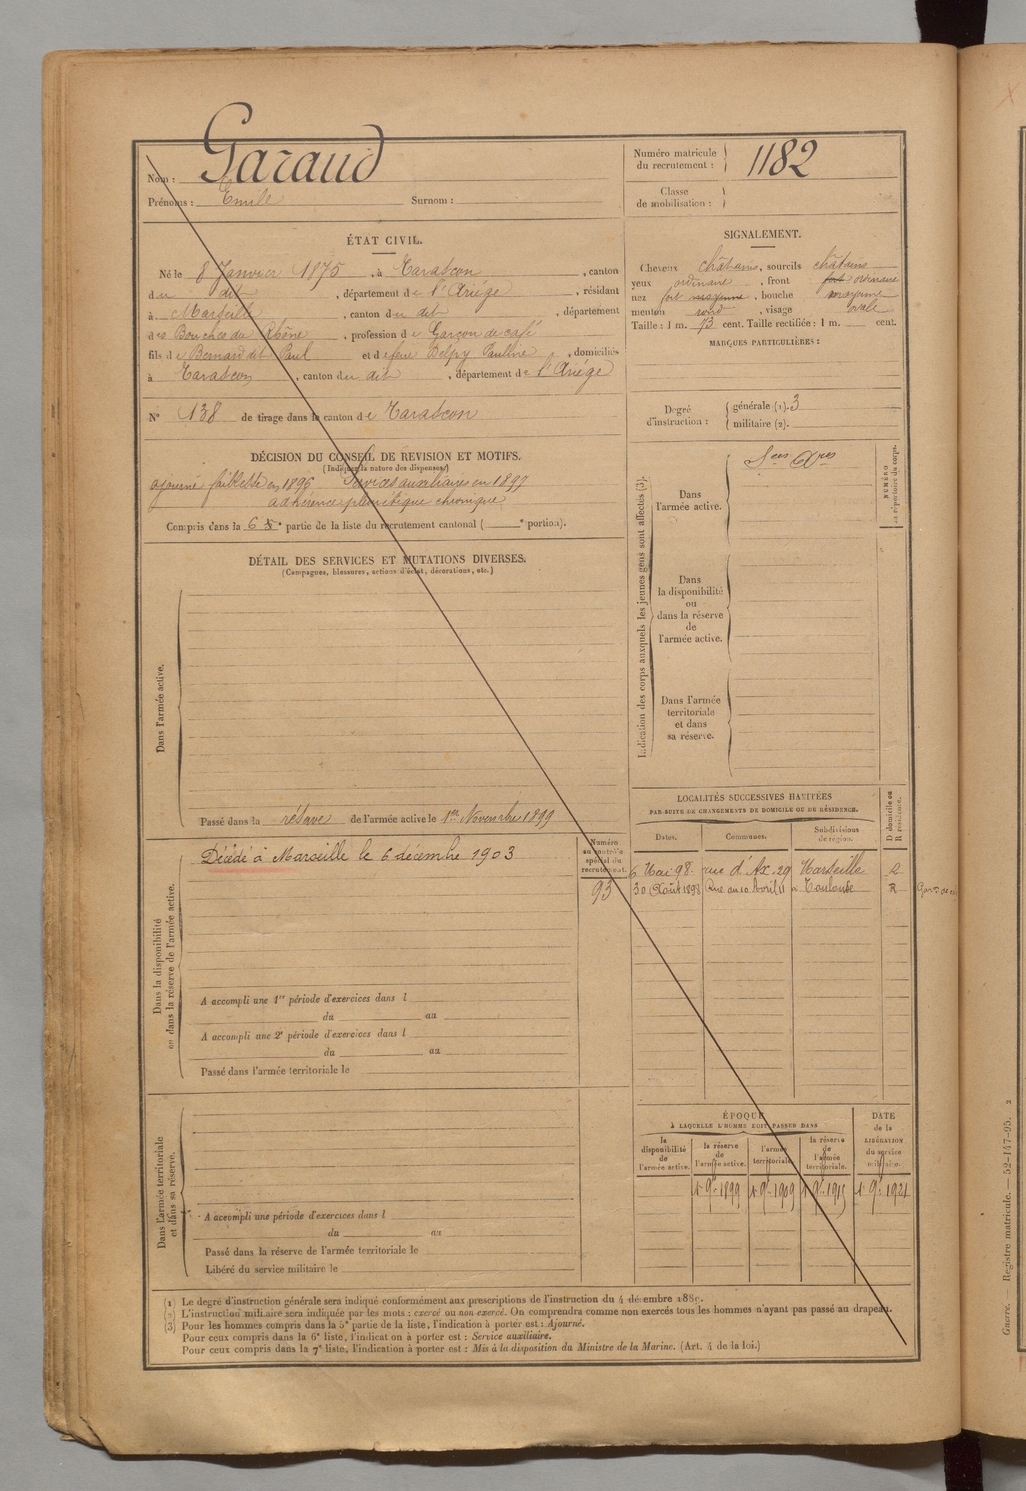 Nom : Garaud
Prénoms : Emile Surnom :
Numéro matricule du recrutement : 1182
Classe de mobilisation :
ÉTAT CIVIL.
Né le 8 Janvier 1875, à Tarascon, canton
du dit, département de l'Ariége, résidant
à Marseille, canton du dit, département
des Bouches du Rhône, profession de Garçon de café
fils de Bernard dit Paul et de feue Delpy Pauline, domiciliés
à Tarascon, canton du dit, département de l'Ariége
N° 138 de tirage dans le canton de Tarascon
SIGNALEMENT.
Cheveux châtains, sourcils châtains
yeux ordinaire, front fort ordinaire
nez fort moyenne, bouche moyenne
menton rond, visage ovale
Taille : 1 m. 73 cent. Taille rectifiée : 1 m. cent.
MARQUES PARTICULIÈRES :
Degré d'instruction : générale (1). 3
militaire (2).
DÉCISION DU CONSEIL DE REVISION ET MOTIFS.
(Indiquer la nature des dispenses.)
ajourné faiblesse en 1896 Services auxiliaires en 1897
adhérence pleurétique chronique
Compris dans la 6e partie de la liste du recrutement cantonal ( e portion).
DÉTAIL DES SERVICES ET MUTATIONS DIVERSES.
(Campagnes, blessures, actions d'éclat, décorations, etc.)
Dans l'armée active.
Passé dans la réserve de l'armée active le 1er Novembre 1899
Indication des corps auxquels les jeunes gens sont affectés (3).
Dans l'armée active.
Sces Ares
NUMÉRO au répertoire du corps.
Dans la disponibilité ou dans la réserve de l'armée active.
Dans l'armée territoriale et dans sa réserve.
Dans la disponibilité ou dans la réserve de l'armée active.
Décédé à Marseille le 6 décembre 1903
Numéro au contrôle spécial du recrutement.
93
A accompli une 1re période d'exercices dans l
du au
A accompli une 2e période d'exercices dans l
du au
Passé dans l'armée territoriale le
LOCALITÉS SUCCESSIVES HABITÉES
PAR SUITE DE CHANGEMENTS DE DOMICILE OU DE RÉSIDENCE.
Dates. Communes. Subdivisions de région. D domicile ou R résidence.
6 Mai 98 rue d'Aix 29 Marseille
30 Août 1898 Rue au 10 Avril 11 Toulouse R
Dans l'armée territoriale et dans sa réserve.
A accompli une période d'exercices dans l
du au
Passé dans la réserve de l'armée territoriale le
Libéré du service militaire le
ÉPOQUE
À LAQUELLE L'HOMME DOIT PASSER DANS
la disponibilité de l'armée active. la réserve de l'armée active. l'armée territoriale. la réserve de l'armée territoriale.
DATE de la LIBÉRATION du service militaire.
1 9bre 1899 1 9bre 1909 1 9bre 1915 1 9bre 1921
(1) Le degré d'instruction générale sera indiqué conformément aux prescriptions de l'instruction du 4 décembre 1889.
(2) L'instruction militaire sera indiquée par les mots : exercé ou non exercé. On comprendra comme non exercés tous les hommes n'ayant pas passé au drapeau.
(3) Pour les hommes compris dans la 5e partie de la liste, l'indication à porter est : Ajourné.
Pour ceux compris dans la 6e liste, l'indication à porter est : Service auxiliaire.
Pour ceux compris dans la 7e liste, l'indication à porter est : Mis à la disposition du Ministre de la Marine. (Art. 4 de la loi.)
Guerre. — Registre matricule. — 52-147-95. 2